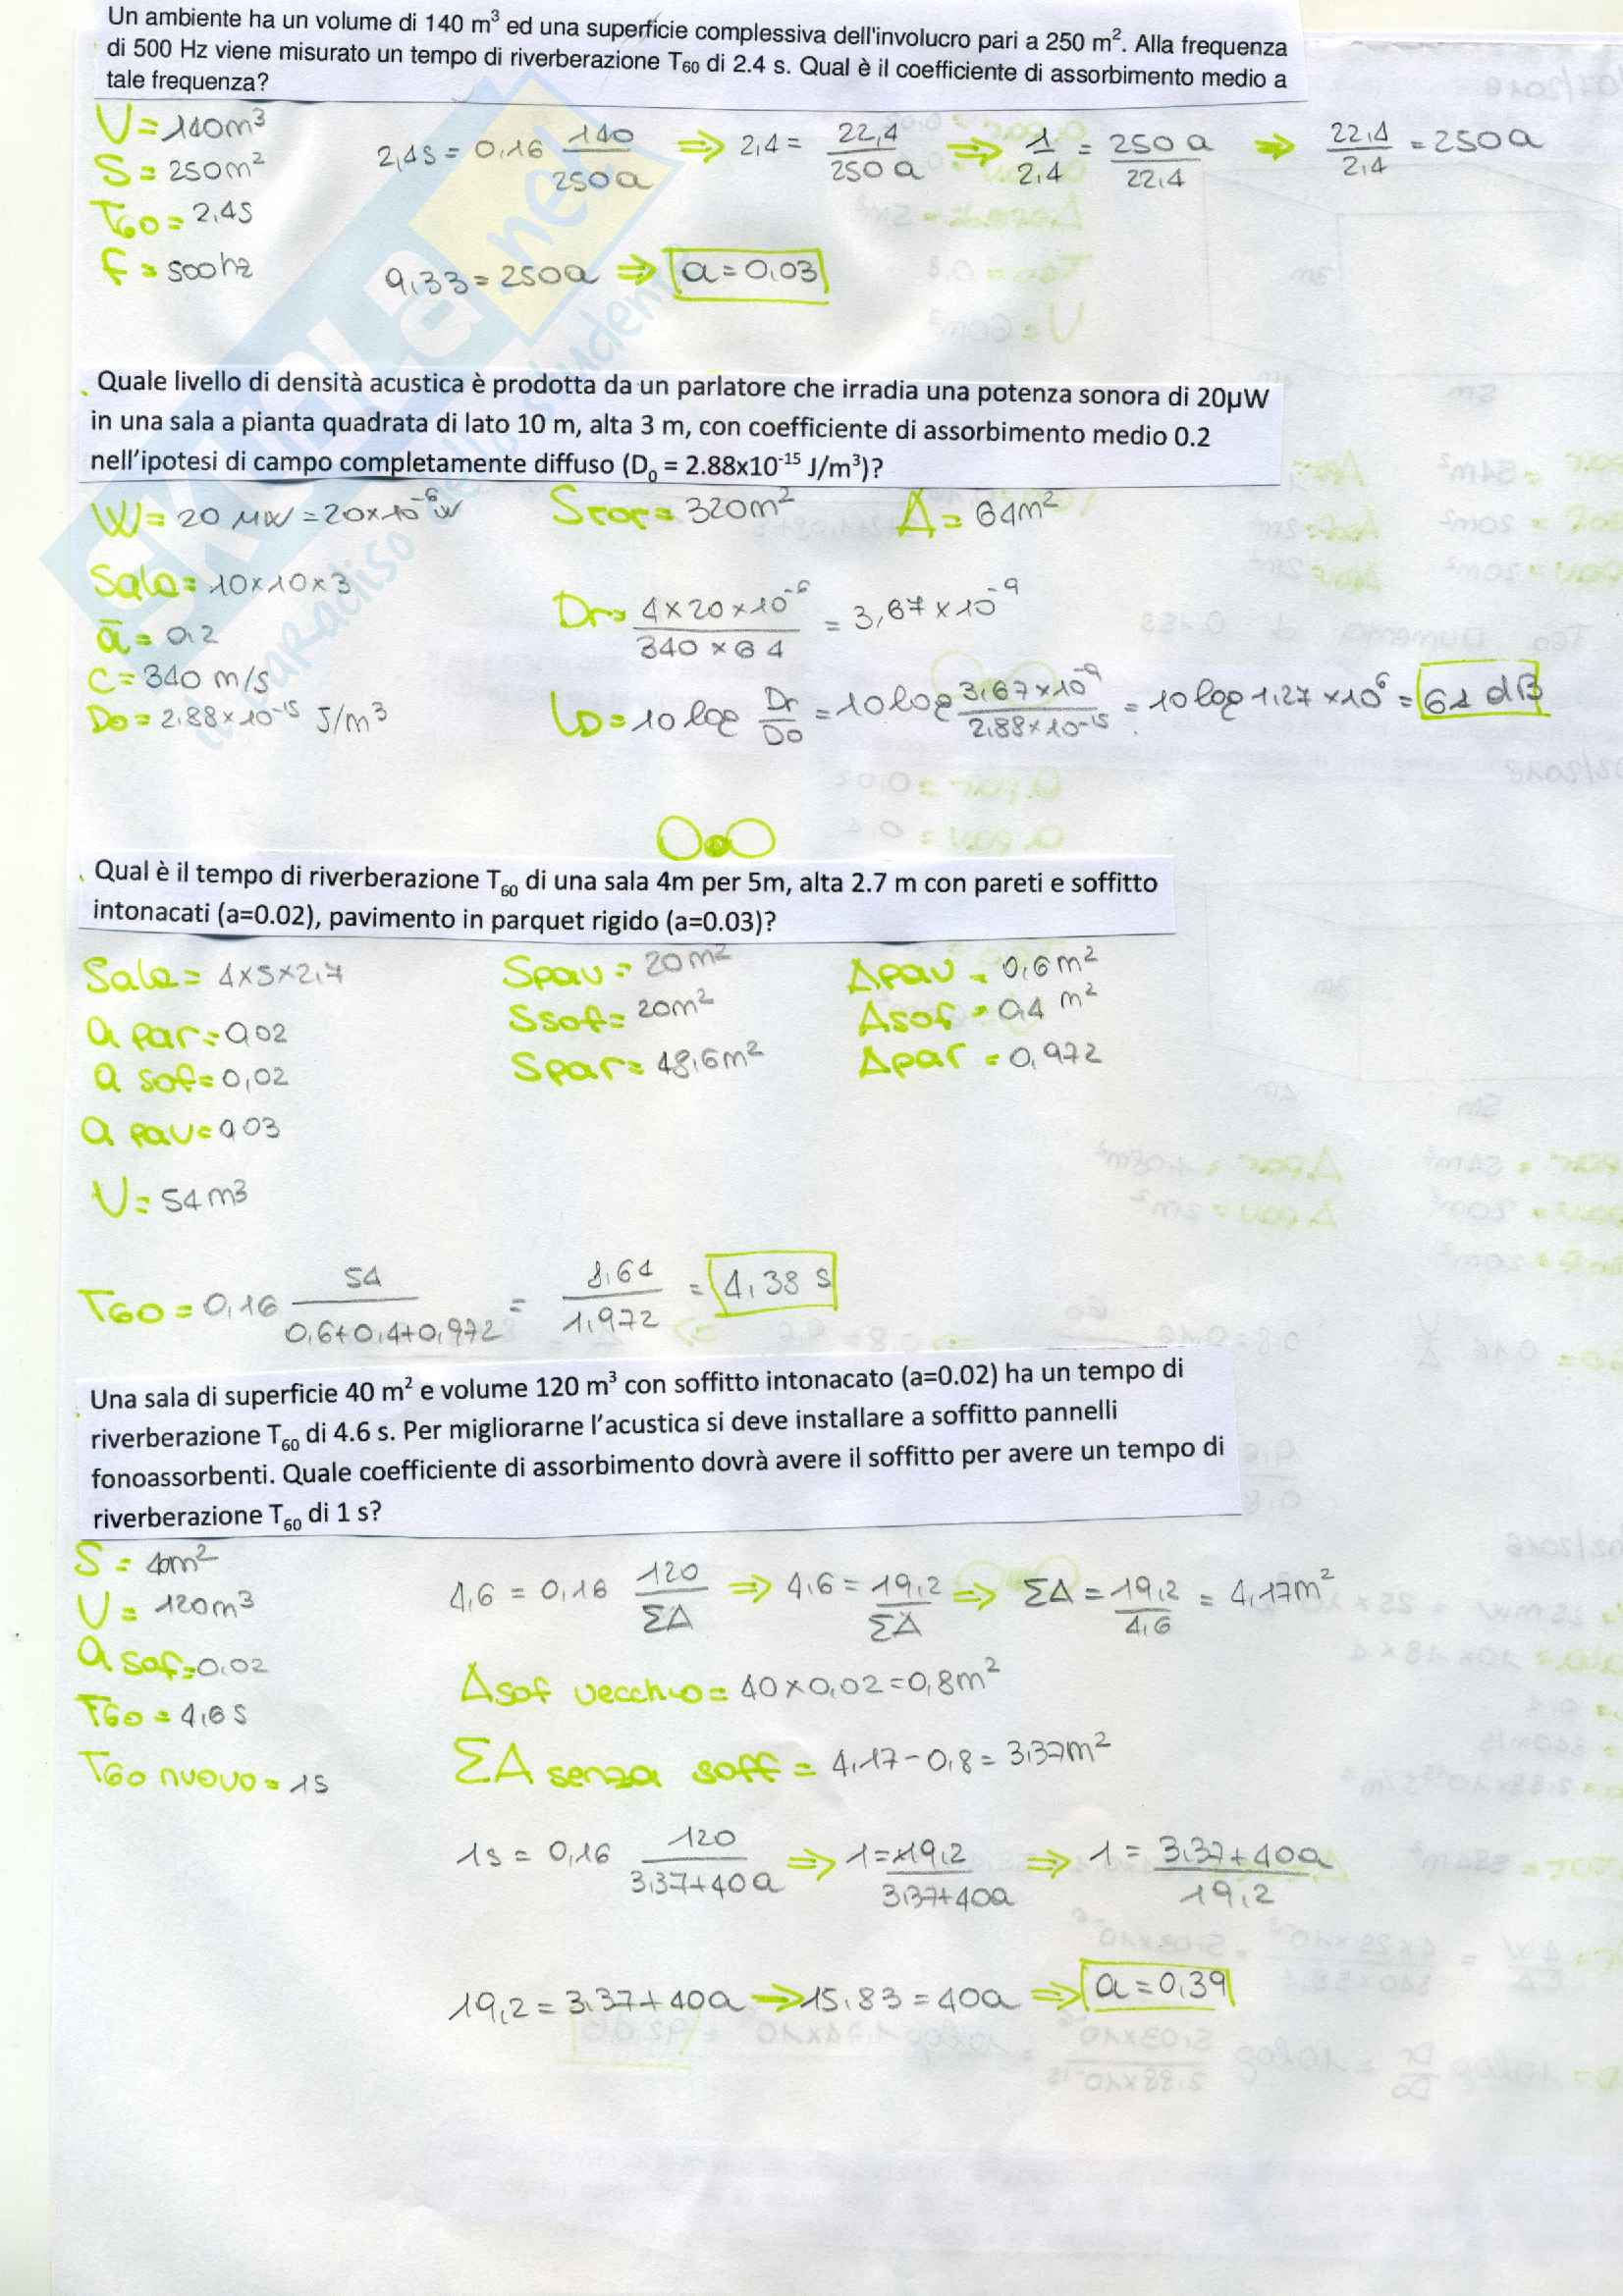 Un ambiente ha un volume di 140 m³ ed una superficie complessiva dell'involucro pari a 250 m². Alla frequenza
di 500 Hz viene misurato un tempo di riverberazione T60 di 2.4 s. Qual è il coefficiente di assorbimento medio a
tale frequenza?
V = 140m³
S = 250m²
T60 = 2,4s
f = 500hz
2,4s = 0,16 140/250a ⇒ 2,4 = 22,4/250a ⇒ 1/2,4 = 250a/22,4 ⇒ 22,4/2,4 = 250a
9,33 = 250a ⇒ a = 0,03
Quale livello di densità acustica è prodotta da un parlatore che irradia una potenza sonora di 20µW
in una sala a pianta quadrata di lato 10 m, alta 3 m, con coefficiente di assorbimento medio 0.2
nell'ipotesi di campo completamente diffuso (D₀ = 2.88x10⁻¹⁵ J/m³)?
W = 20 µW = 20×10⁻⁶W
Sala = 10×10×3
ā = 0,2
C = 340 m/s
Do = 2,88×10⁻¹⁵ J/m³
STOT = 320m² A = 64m²
Dr = 4×20×10⁻⁶/340×64 = 3,67×10⁻⁹
LD = 10 log Dr/Do = 10 log 3,67×10⁻⁹/2,88×10⁻¹⁵ = 10 log 1,27×10⁶ = 61 dB
Qual è il tempo di riverberazione T60 di una sala 4m per 5m, alta 2.7 m con pareti e soffitto
intonacati (a=0.02), pavimento in parquet rigido (a=0.03)?
Sala = 4×5×2,7
a par = 0,02
a sof = 0,02
a pav = 0,03
V = 54m³
Spav = 20m²
Ssof = 20m²
Spar = 48,6m²
Apav = 0,6m²
Asof = 0,4 m²
Apar = 0,972
T60 = 0,16 54/0,6+0,4+0,972 = 8,64/1,972 = 4,38 s
Una sala di superficie 40 m² e volume 120 m³ con soffitto intonacato (a=0.02) ha un tempo di
riverberazione T60 di 4.6 s. Per migliorarne l'acustica si deve installare a soffitto pannelli
fonoassorbenti. Quale coefficiente di assorbimento dovrà avere il soffitto per avere un tempo di
riverberazione T60 di 1 s?
S = 40m²
V = 120m³
a sof = 0,02
T60 = 4,6 s
T60 nuovo = 1s
4,6 = 0,16 120/ΣA ⇒ 4,6 = 19,2/ΣA ⇒ ΣA = 19,2/4,6 = 4,17m²
Asof vecchio = 40×0,02 = 0,8m²
ΣA senza soff = 4,17-0,8 = 3,37m²
1s = 0,16 120/3,37+40a ⇒ 1 = 19,2/3,37+40a ⇒ 1 = 3,37+40a/19,2
19,2 = 3,37+40a ⇒ 15,83 = 40a ⇒ a = 0,39